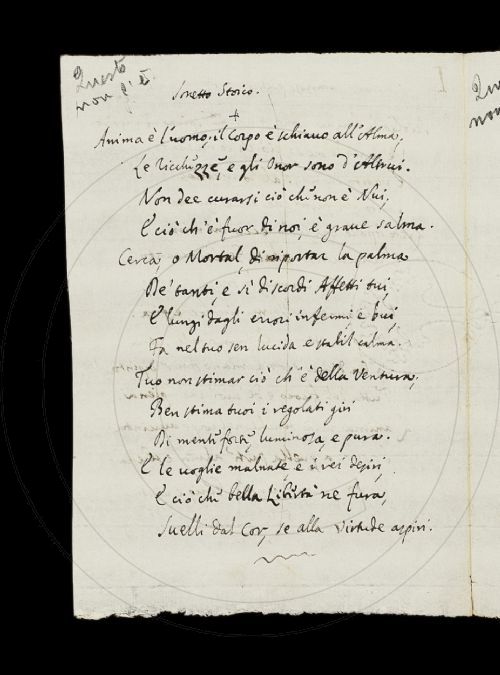 Questo
non c'è
Sonetto Stoico.
Anima è l'uomo, il Corpo è schiavo all'Alma,
Le Ricchezze, e gli Onor sono d'Altrui.
Non dee curarsi ciò che non è Nui,
E ciò ch'è fuor di noi, è grave salma.
Cerca, o Mortal, di riportar la palma
De' tanti, e sì discordi Affetti tui,
E lungi dagli errori infermi e bui,
Fa nel tuo sen lucida e stabil calma.
Tuo non stimar ciò ch'è della Ventura,
Ben stima tuoi i regolati giri
Di mente forte luminosa, e pura.
E le voglie malnate e i rei desiri,
E ciò che bella Libertà ne fura,
Svelli dal Cor, se alla Virtude aspiri.